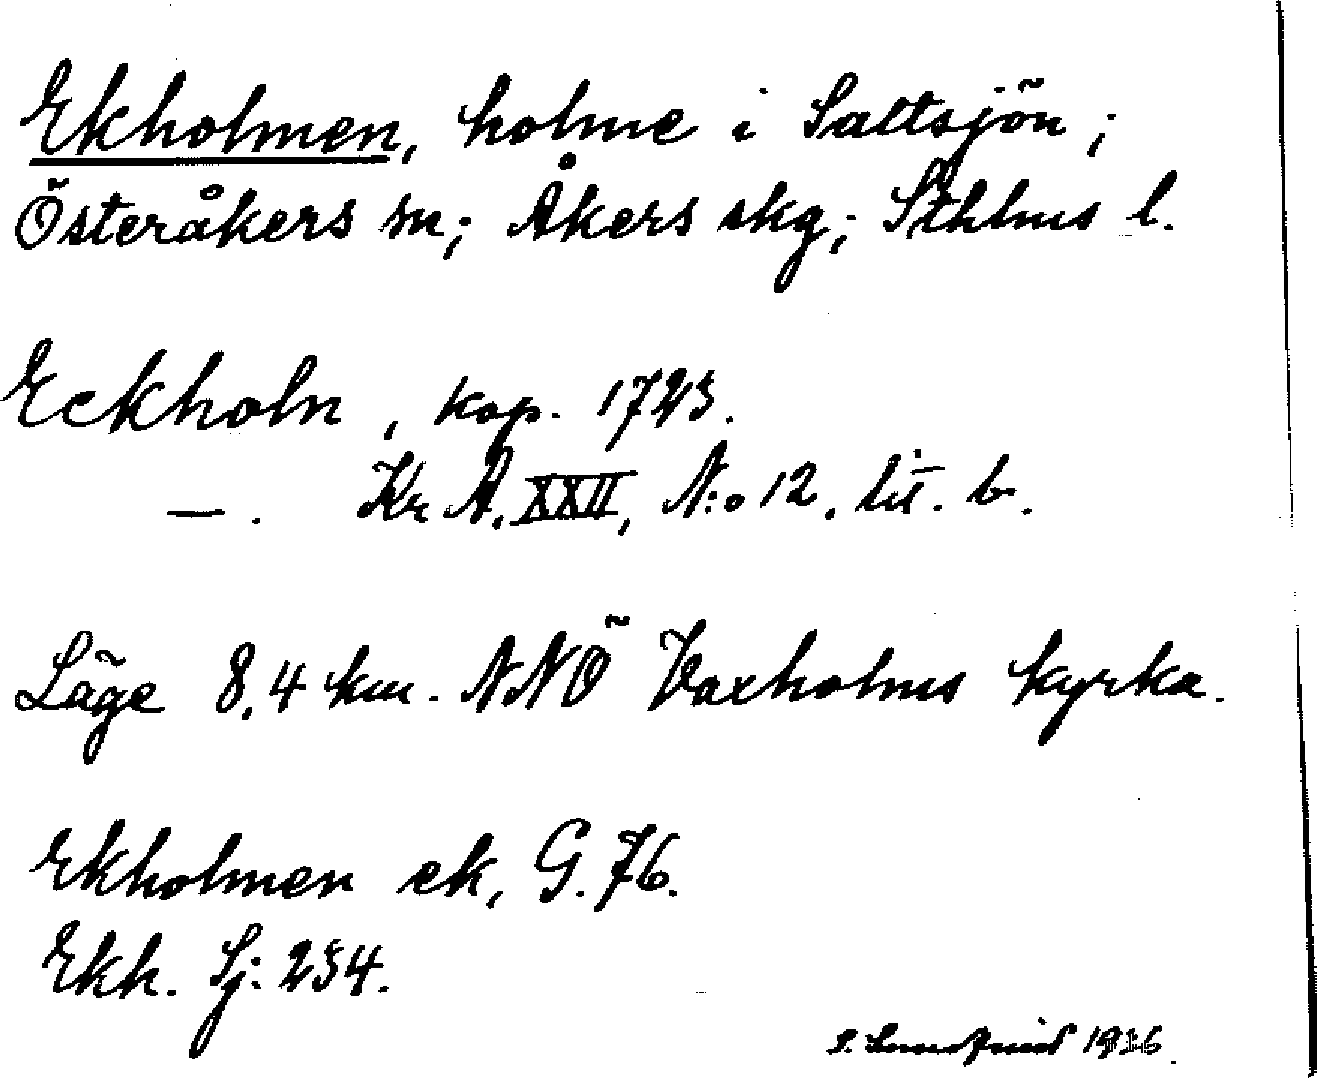 Ekholmen, holme i Saltsjön;
Österåkers sn; Åkers skg; Sthlms l.
Eckholn, kop. 1723.
—. Kr A. XXII, N:o 12. lit. b.
Läge 8,4 km. NNÖ Vaxholms kyrka.
Ekholmen ek, G. 76.
Ekh. Sj: 234.
1936